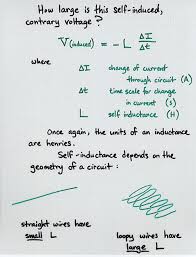 How large is this self-induced,
contrary voltage?
V(induced) = - L ΔI/Δt
where
ΔI change of current through circuit (A)
Δt time scale for change in current (s)
L self inductance (H)
Once again, the units of an inductance
are henries.
Self-inductance depends on the
geometry of a circuit:
straight wires have
small L
loopy wires have
large L